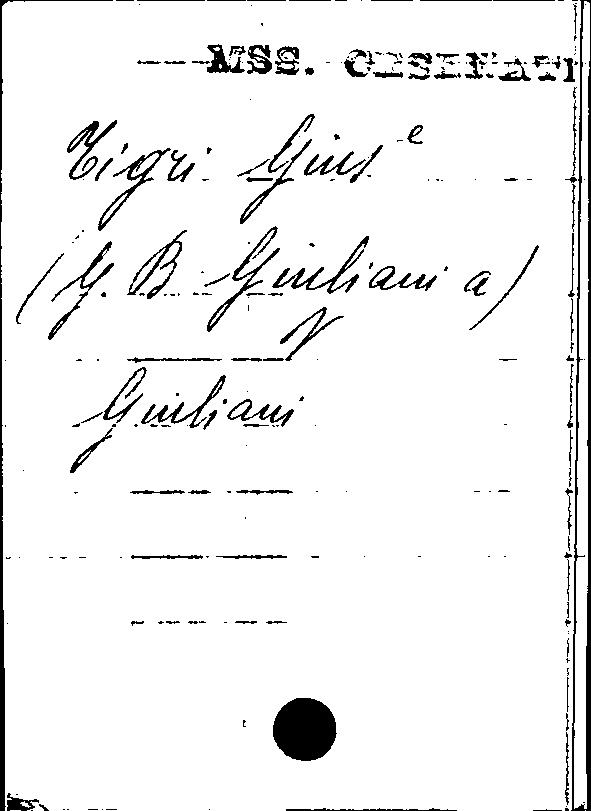 MSS. CESENATI
Tigri Gius e
(G. B Giuliani a)
V
Giuliani